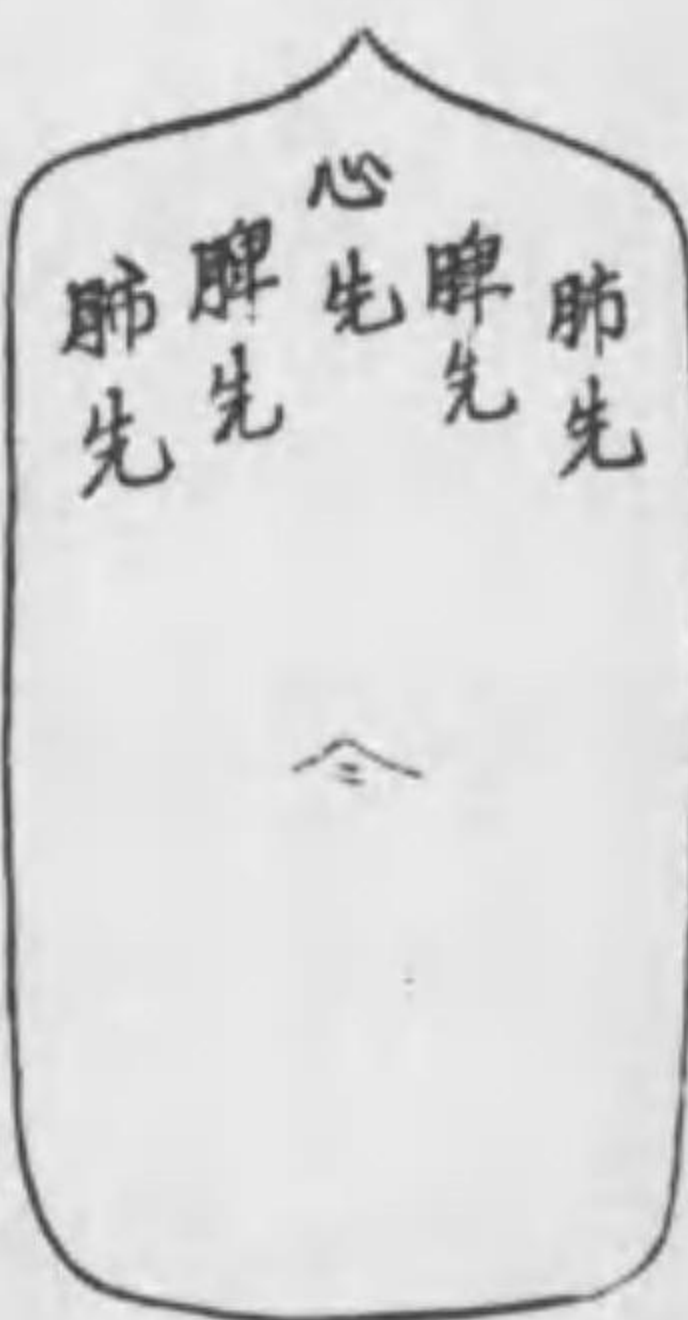 肺先
脾先
心先
脾先
肺先